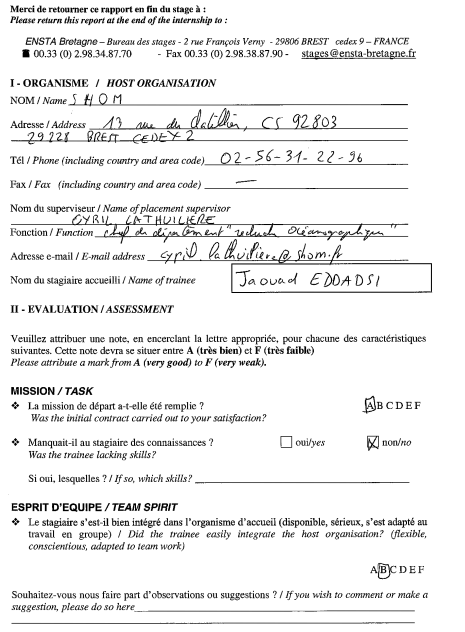 Merci de retourner ce rapport en fin du stage à :
Please return this report at the end of the internship to :
ENSTA Bretagne – Bureau des stages - 2 rue François Verny - 29806 BREST cedex 9 – FRANCE
00.33 (0) 2.98.34.87.70 - Fax 00.33 (0) 2.98.38.87.90 - stages@ensta-bretagne.fr
I - ORGANISME / HOST ORGANISATION
NOM / Name SHOM
Adresse / Address 13 rue du Chatellier, CS 92803
29228 BREST CEDEX 2
Tél / Phone (including country and area code) 02-56-31-22-96
Fax / Fax (including country and area code) —
Nom du superviseur / Name of placement supervisor
CYRIL LATHUILIERE
Fonction / Function chef du département "recherche océanographique"
Adresse e-mail / E-mail address cyril.lathuiliere@shom.fr
Nom du stagiaire accueilli / Name of trainee Jaouad EDDADSI
II - EVALUATION / ASSESSMENT
Veuillez attribuer une note, en encerclant la lettre appropriée, pour chacune des caractéristiques
suivantes. Cette note devra se situer entre A (très bien) et F (très faible)
Please attribute a mark from A (very good) to F (very weak).
MISSION / TASK
❖ La mission de départ a-t-elle été remplie ? A B C D E F
Was the initial contract carried out to your satisfaction?
❖ Manquait-il au stagiaire des connaissances ? oui/yes non/no
Was the trainee lacking skills?
Si oui, lesquelles ? / If so, which skills?
ESPRIT D'EQUIPE / TEAM SPIRIT
❖ Le stagiaire s'est-il bien intégré dans l'organisme d'accueil (disponible, sérieux, s'est adapté au
travail en groupe) / Did the trainee easily integrate the host organisation? (flexible,
conscientious, adapted to team work)
A B C D E F
Souhaitez-vous nous faire part d'observations ou suggestions ? / If you wish to comment or make a
suggestion, please do so here